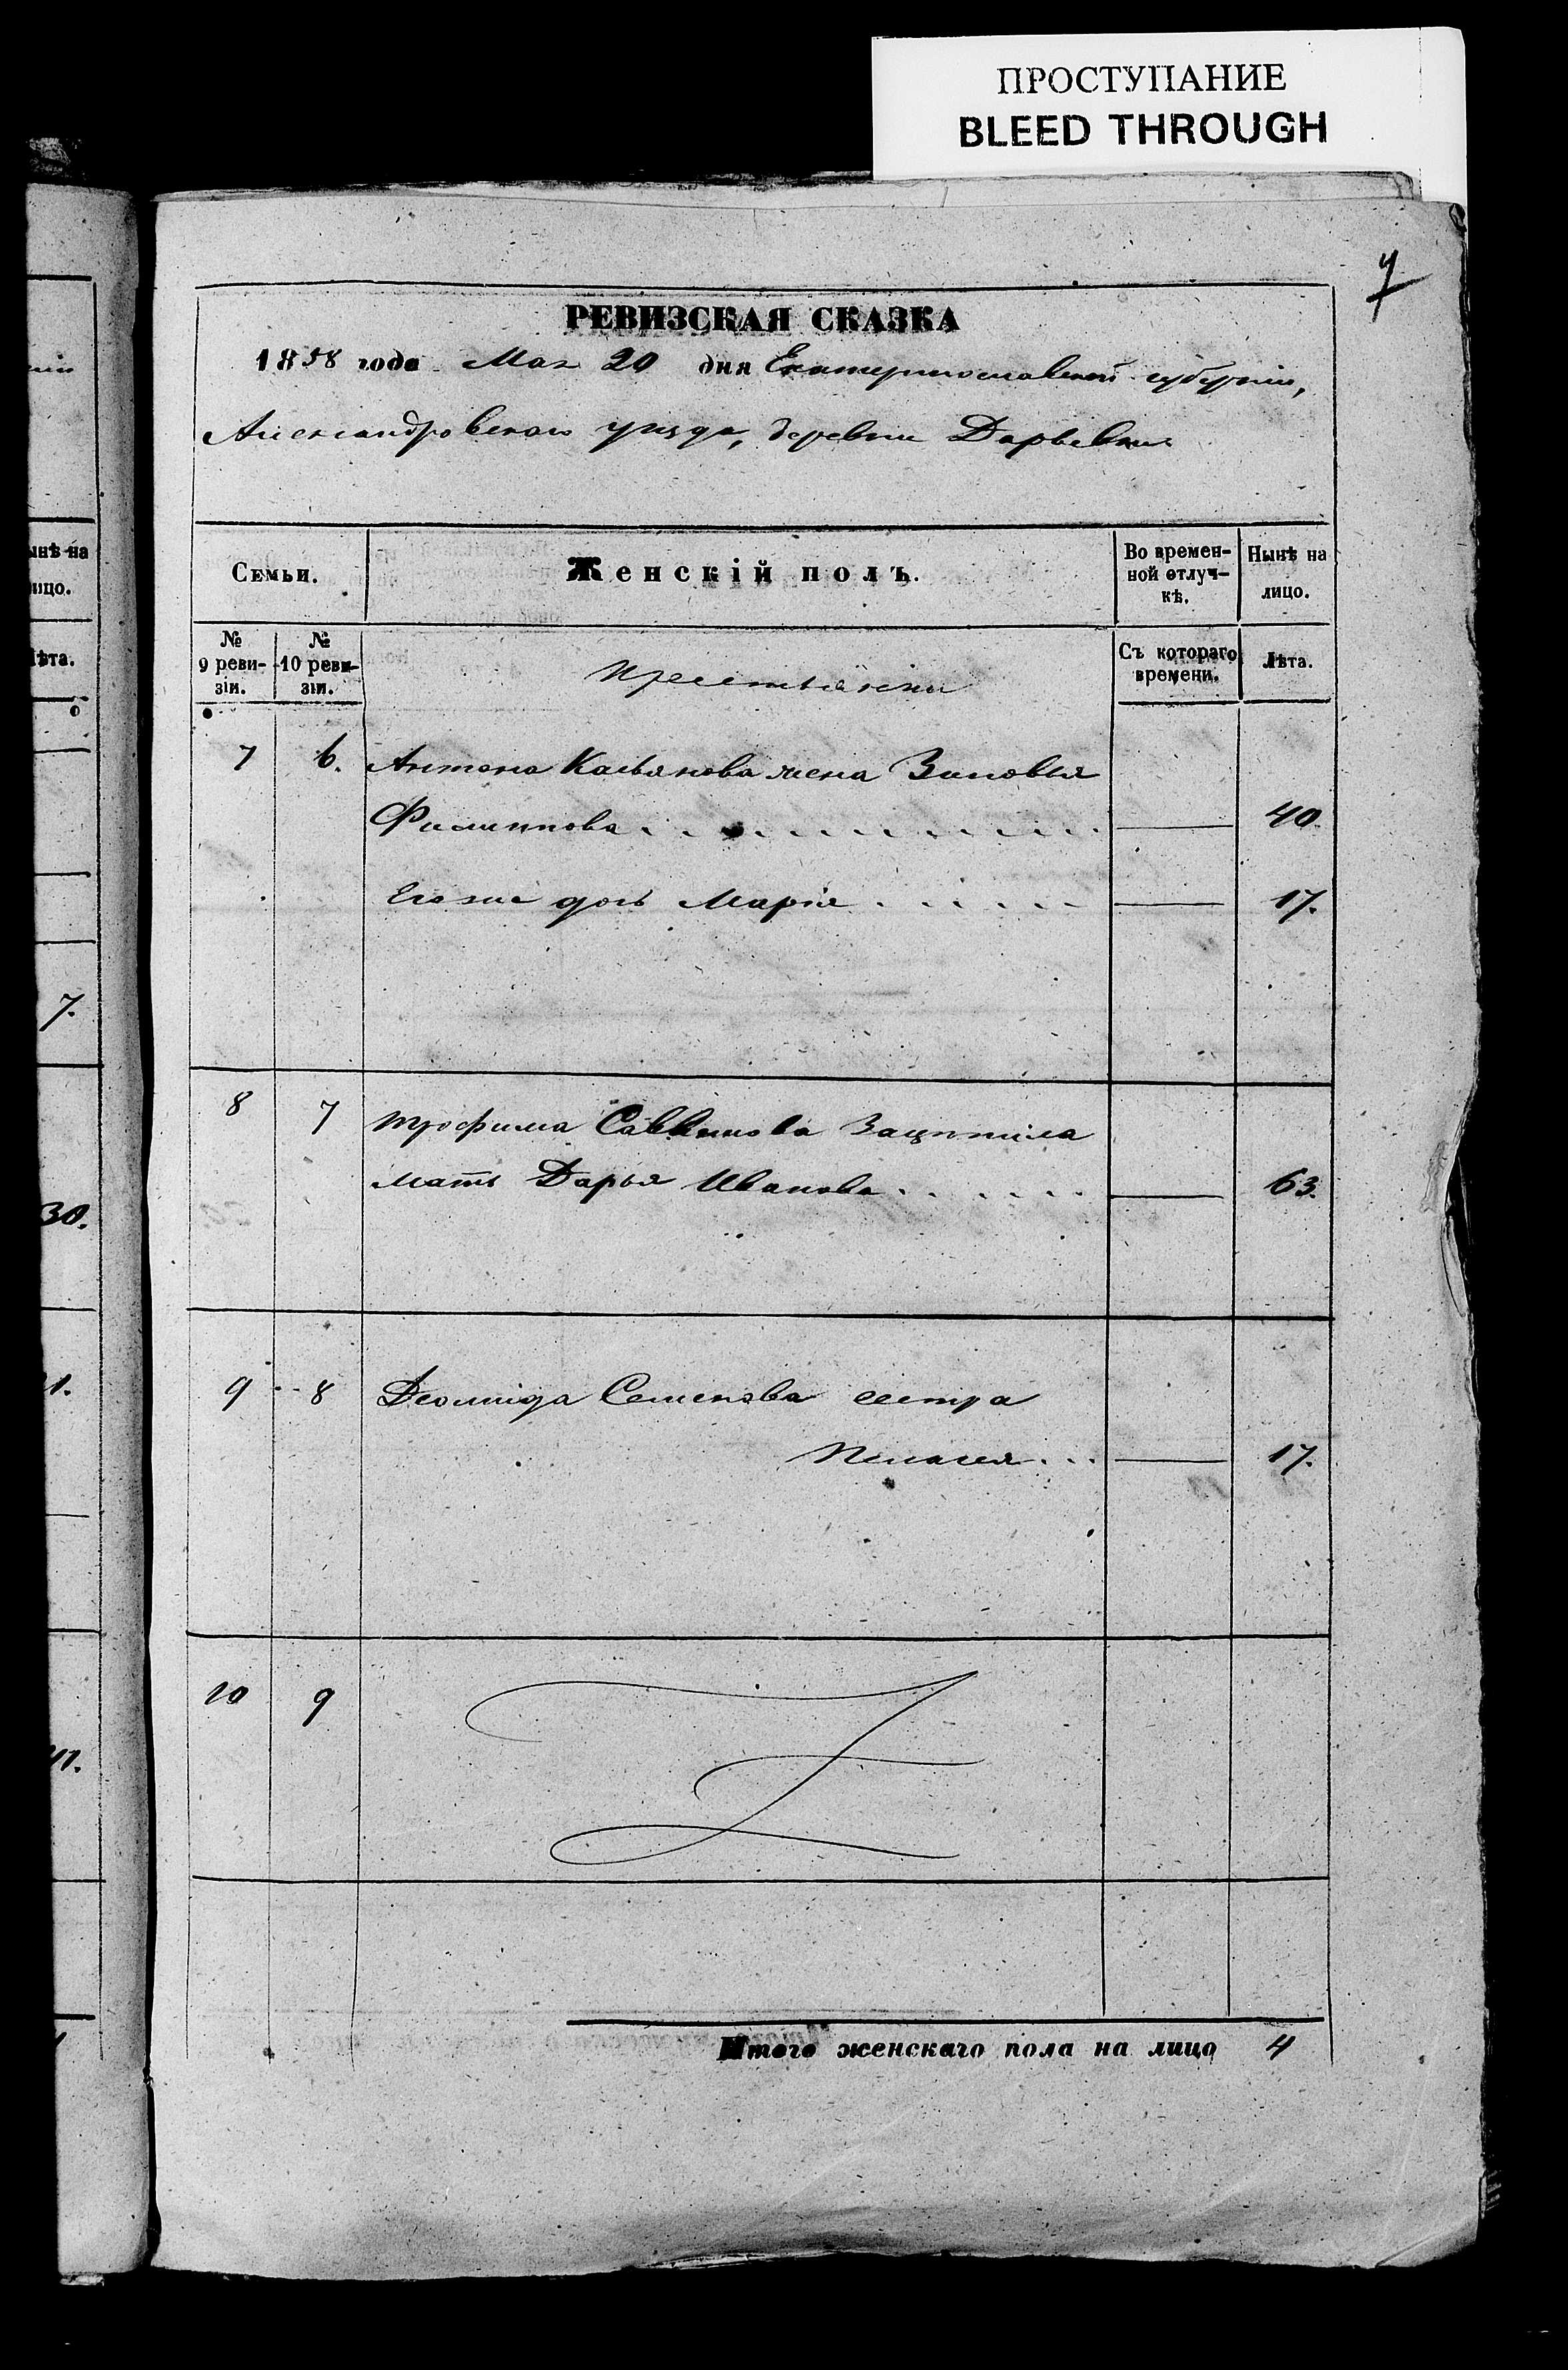 ПРОСТУПАНИЕ
BLEED THROUGH
7
РЕВИЗСКАЯ СКАЗКА
1858 года Мая 20 дня Екатеринославской губерніи,
Александровскаго уѣзда, деревни Дарьевки
Семьи.
Женскій полъ.
Во времен-
ной отлуч-
кѣ.
Нынѣ на
лицо.
№
9 реви-
зіи.
№
10 реви-
зіи.
Крестьянки
Съ котораго
времени.
Лѣта.
7 6. Антона Касьянова жена Зиновья
Филиппова 40
Его же дочь Марія 17.
8 7 Трофима Саввинова
мать Дарья Иванова 63.
9 8 Деомида Семенова сестра
Пелагея 17.
10 9
Итого женскаго пола на лицо 4
ынѣ на
ицо.
ѣта.
7.
30.
1.
41.